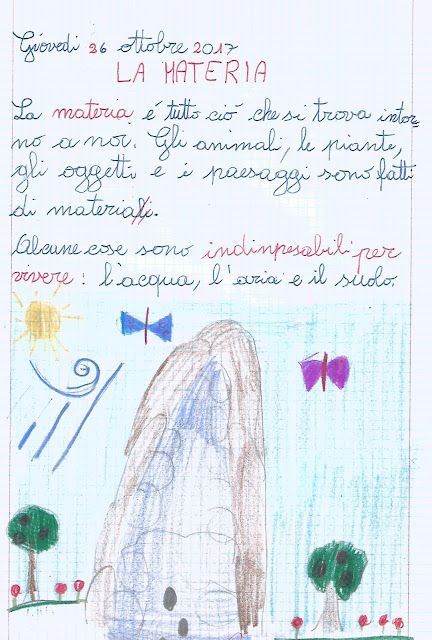 Giovedì 26 ottobre 2017
LA MATERIA
La materia é tutto ciò che si trova intor=
no a noi. Gli animali, le piante,
gli oggetti e i paesaggi sono fatti
di materia.
Alcune cose sono indinpesabili per
vivere: l'acqua, l'aria e il suolo.